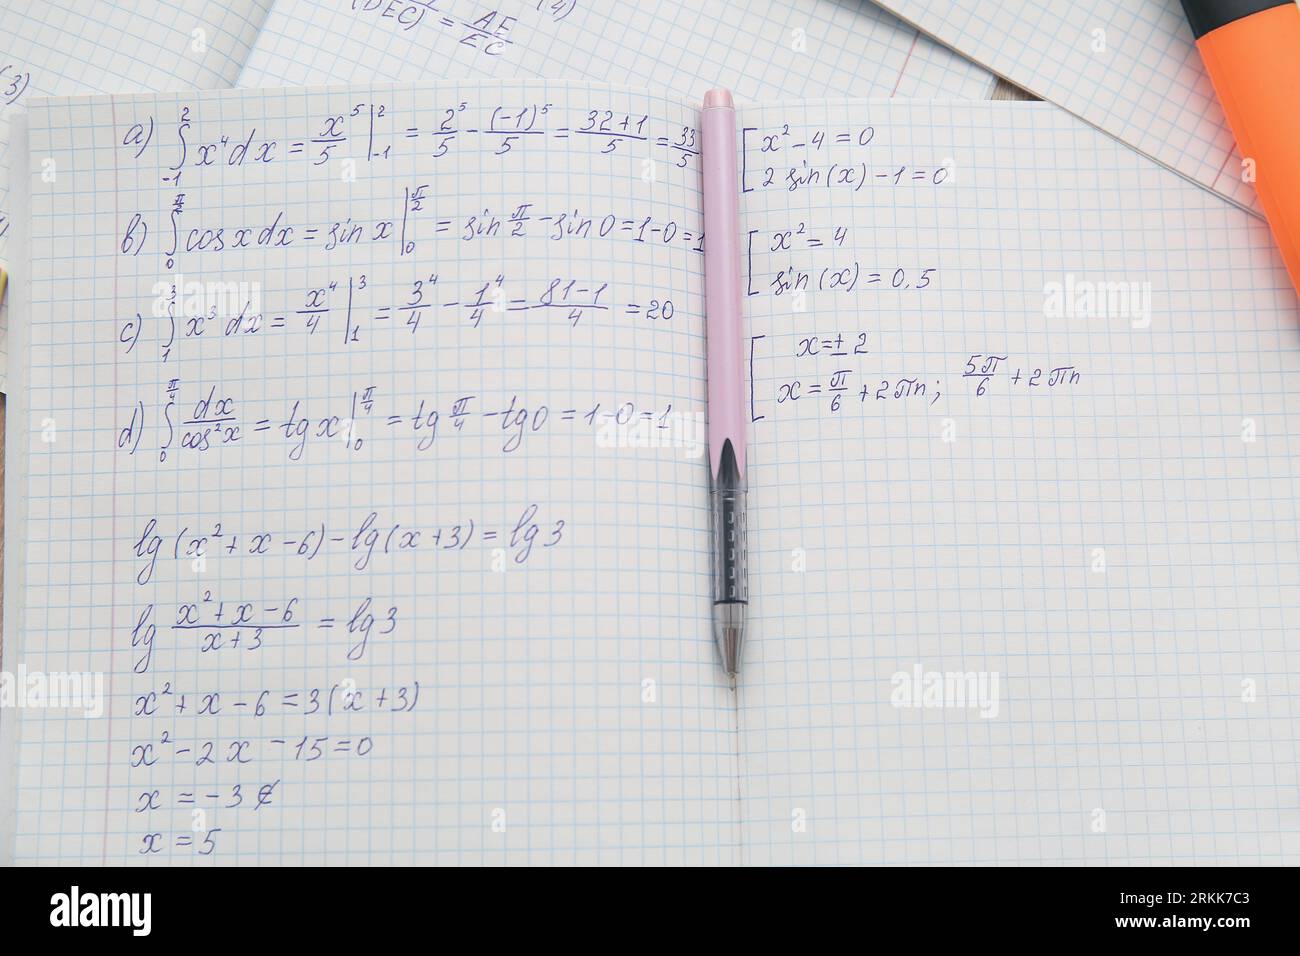 (DEC) = AE/EC
(4)
(3)
a) ∫₋₁² x⁴dx = x⁵/5 |₋₁² = 2⁵/5 - (-1)⁵/5 = 32+1/5 = 33/5
b) ∫₀^(π/2) cos x dx = sin x |₀^(π/2) = sin π/2 - sin 0 = 1-0 = 1
c) ∫₁³ x³ dx = x⁴/4 |₁³ = 3⁴/4 - 1⁴/4 = 81-1/4 = 20
d) ∫₀^(π/4) dx/cos²x = tg x |₀^(π/4) = tg π/4 - tg 0 = 1-0 = 1
lg (x²+x-6) - lg (x+3) = lg 3
lg x²+x-6/x+3 = lg 3
x²+x-6 = 3(x+3)
x²-2x-15=0
x = -3 ∉
x = 5
[ x²-4=0
2 sin(x)-1=0
[ x²=4
sin(x)=0,5
[ x=±2
x=π/6+2πn; 5π/6+2πn
alamy
a
alamy
Image ID: 2RKK7C3
www.alamy.com